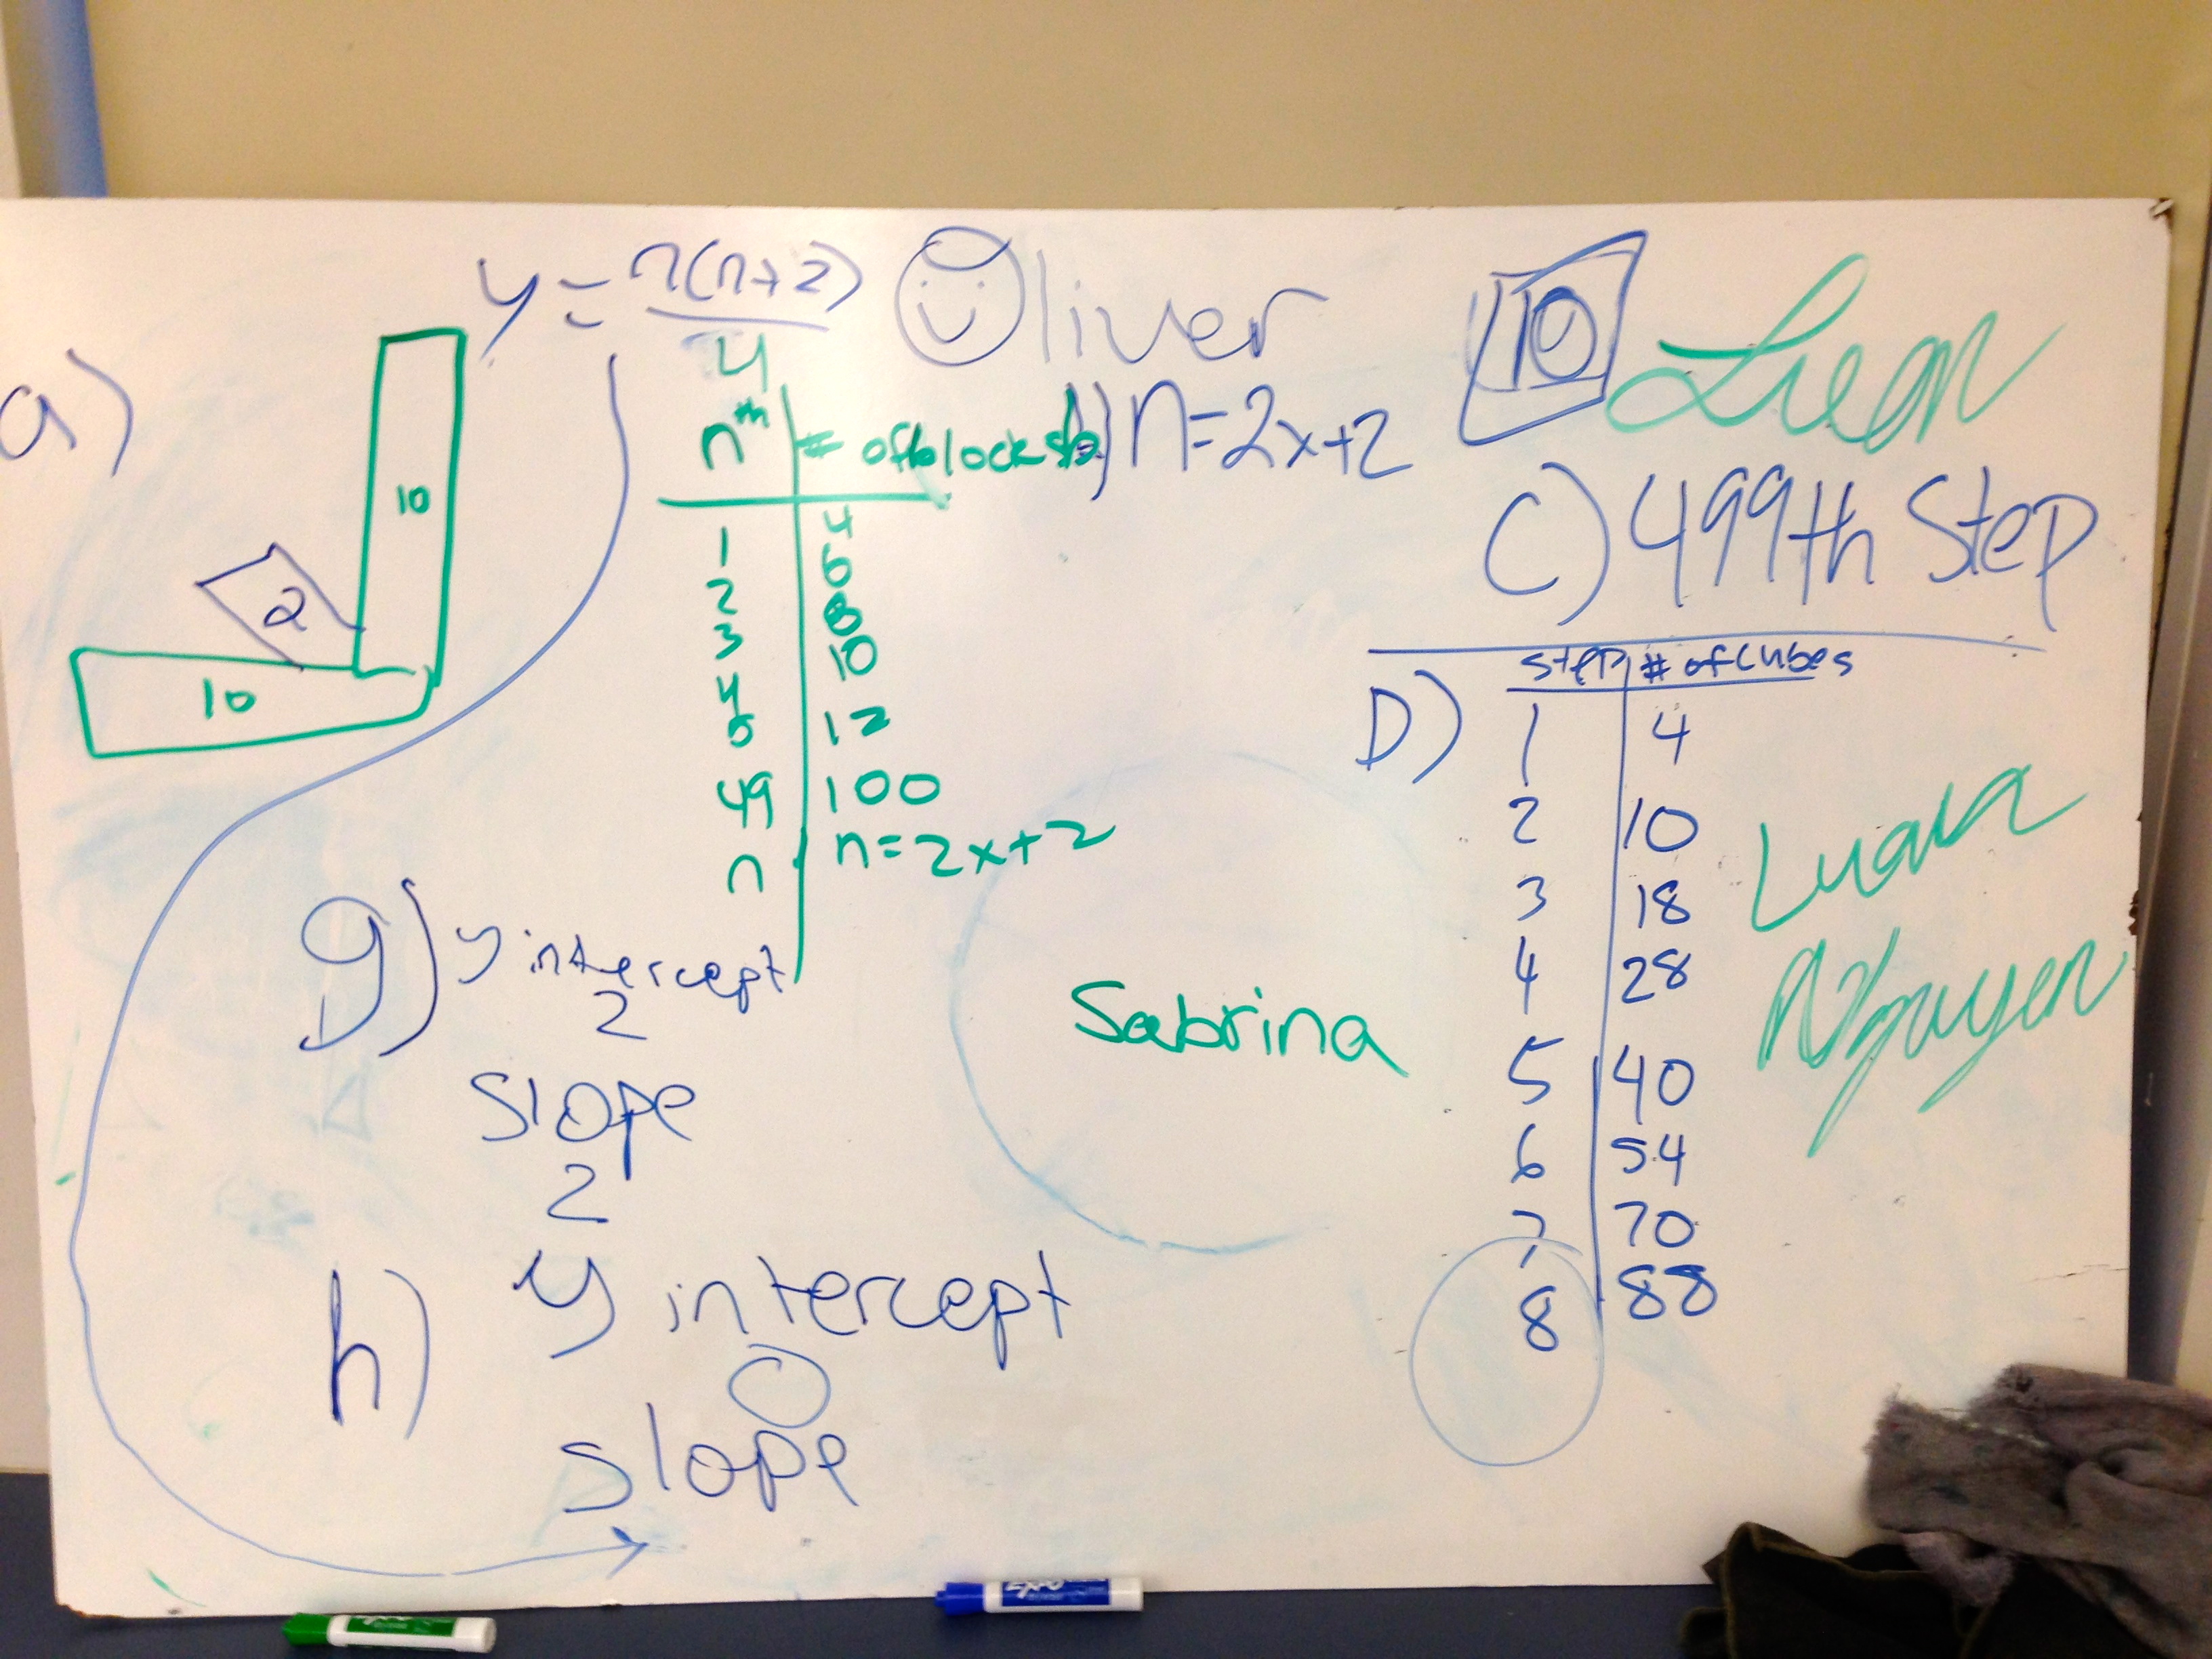 y = n(n+2)
4
Oliver
10
Luan
a)
10
2
10
nth # of blocks
1 4
2 6
3 8
4 10
5 12
49 100
n n=2x+2
b) n=2x+2
C) 499th Step
D) step # of cubes
1 4
2 10
3 18
4 28
5 40
6 54
7 70
8 88
Luan
Nguyen
Sabrina
g) y intercept
2
slope
2
h) y intercept
0
slope
Expo